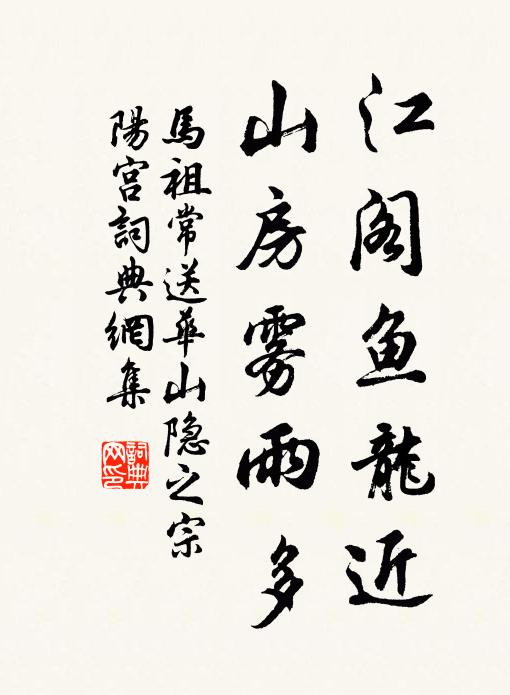 江阁鱼龍近
山房雾雨多
馬祖常送華山隐之宗
陽宫詞典網集
詞典網印